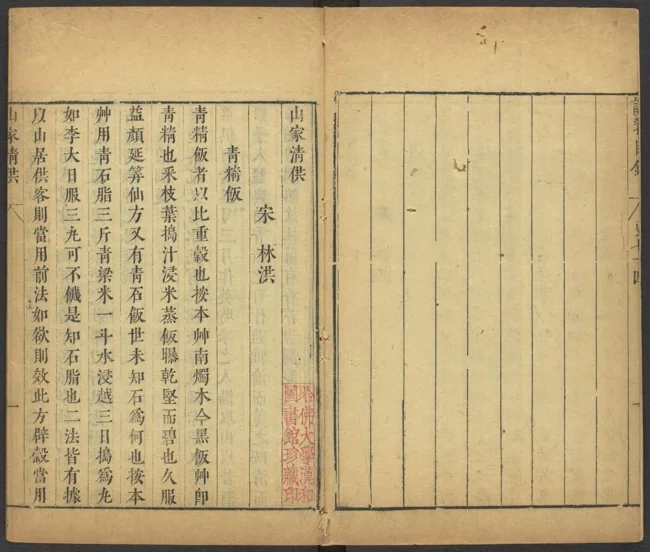 山家清供
宋 林洪
青精飯
青精飯者以比重穀也按本艸南燭木今黑飯艸卽
青精也采枝葉搗汁浸米蒸飯曝乾堅而碧也久服
益顏延筭仙方又有青石飯世未知石爲何也按本
艸用青石脂三斤青粱米一斗水浸越三日搗爲丸
如李大日服三丸可不饑是知石脂也二法皆有據
以山居供客則當用前法如欲則效此方辟穀當用
山家清供 一
哈佛大學漢和
圖書館珍藏印